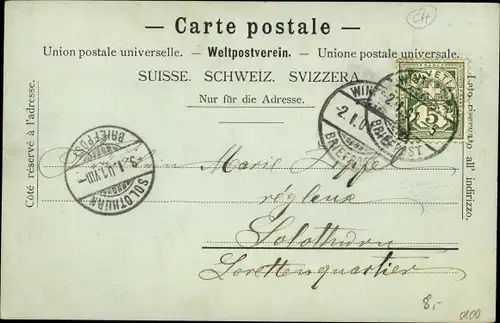 — Carte postale —
CH
Union postale universelle. — Weltpostverein. — Unione postale universale.
SUISSE. SCHWEIZ. SVIZZERA
Nur für die Adresse.
Côté réservé à l'adresse.
Lato riservato all' indirizzo.
5
BRIEFPOST
SOLOTHURN
BRIEFPOST
Marie
régleuse
Solothurn
Lorettenquartier
8,-
0100